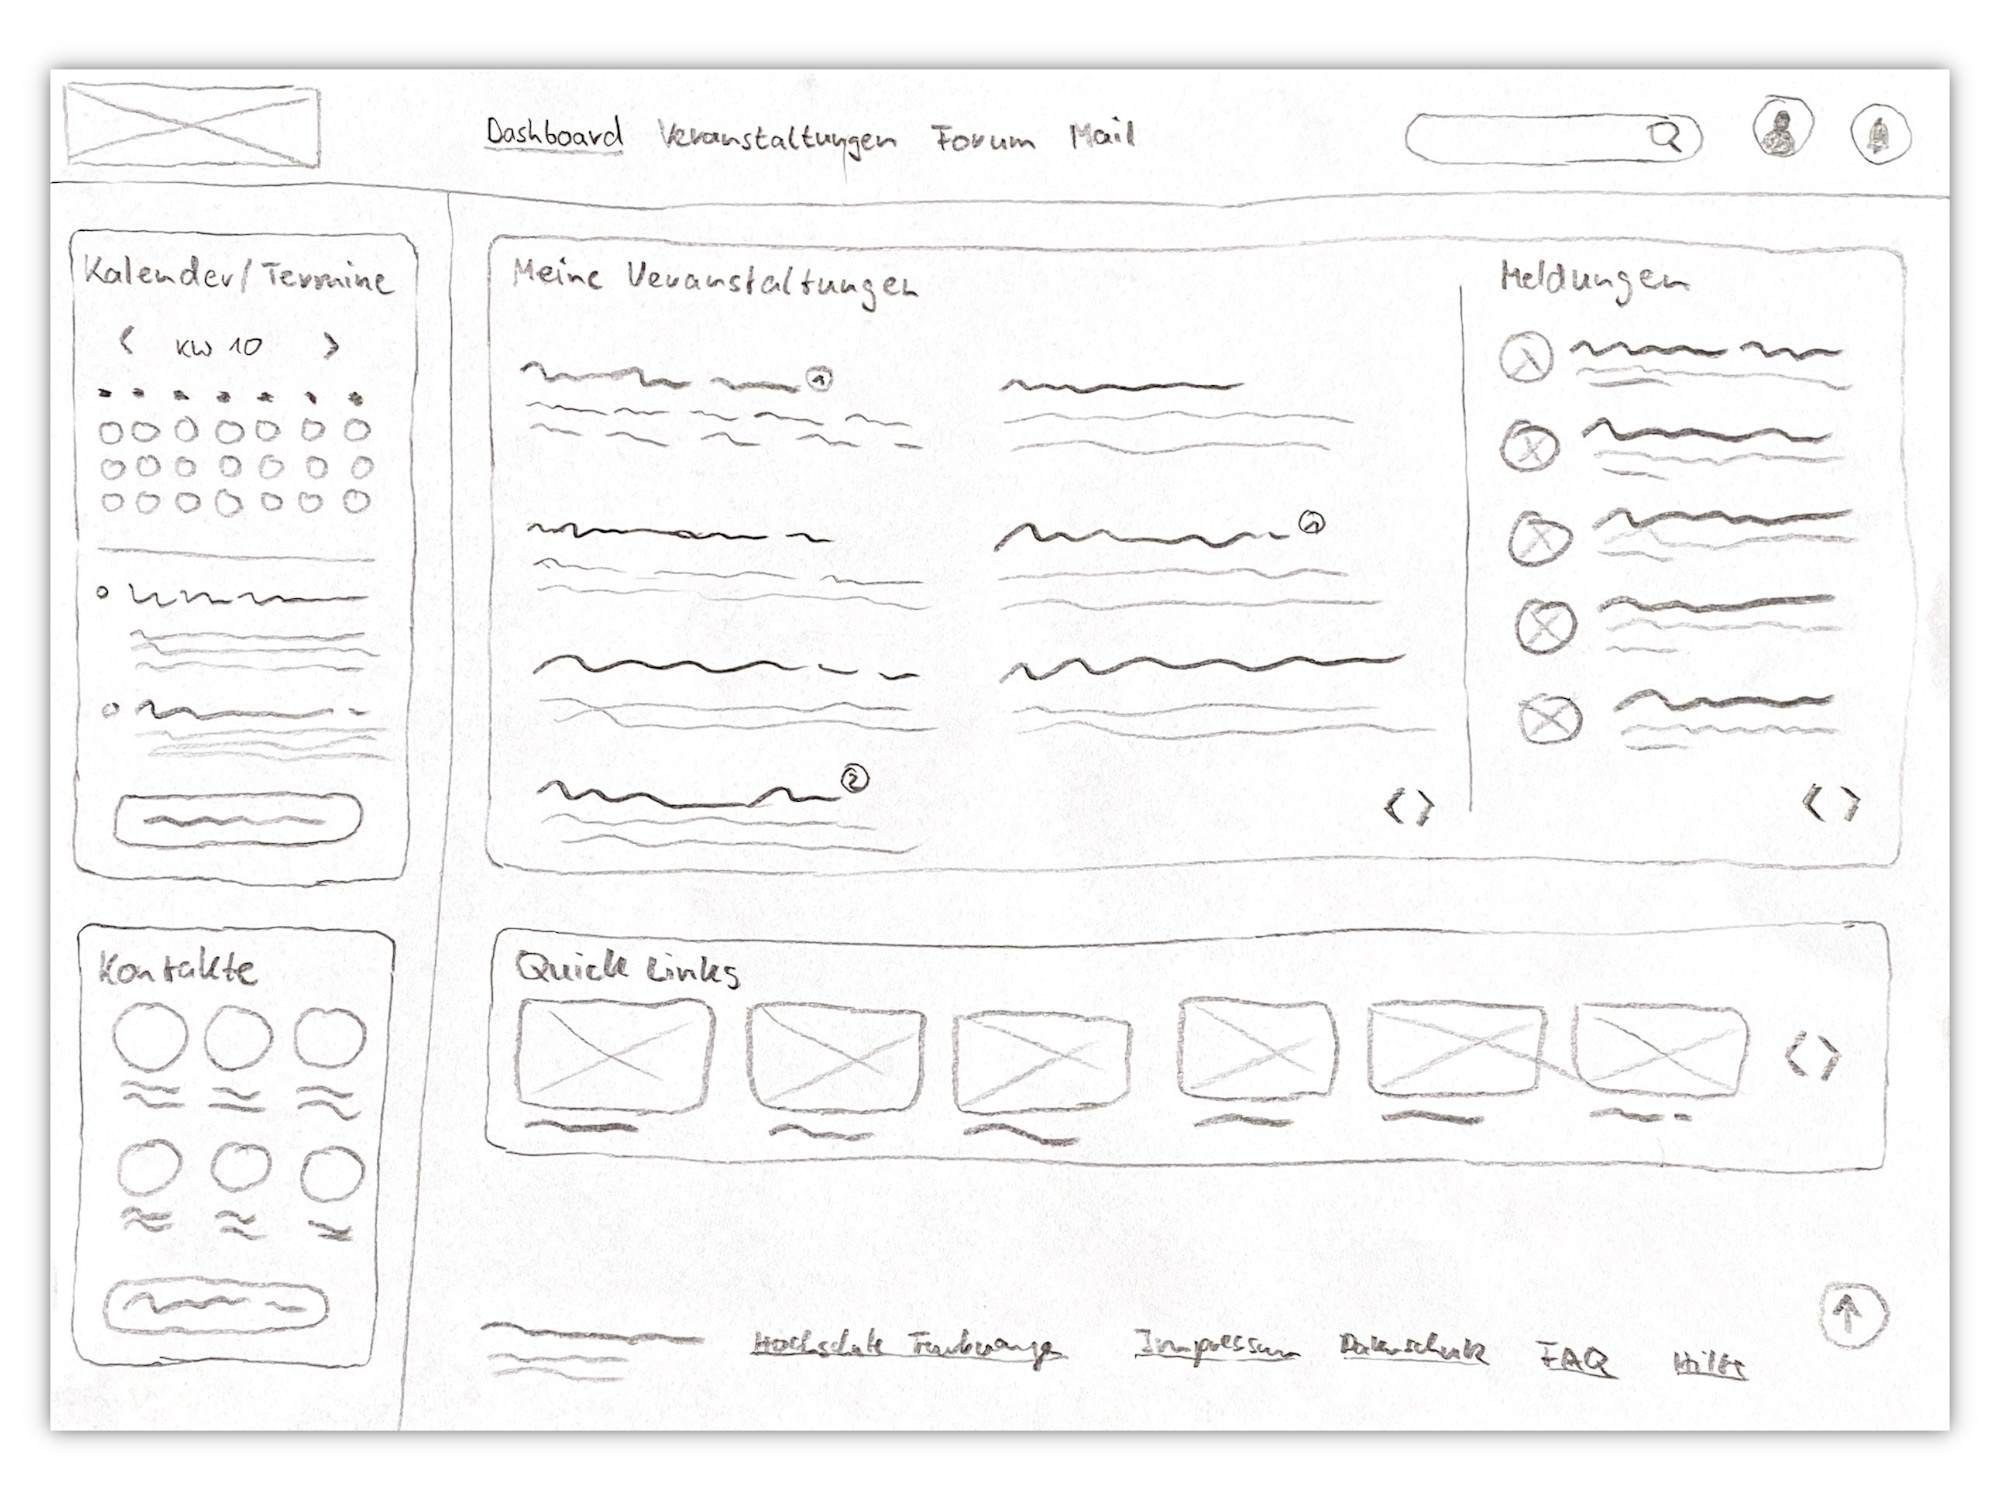 Dashboard Veranstaltungen Forum Mail
Kalender/Termine
< KW 10 >
Meine Veranstaltungen
1
1
2
< >
Meldungen
< >
Kontakte
Quick Links
< >
Hochschule Furtwangen Impressum Datenschutz FAQ Hilfe